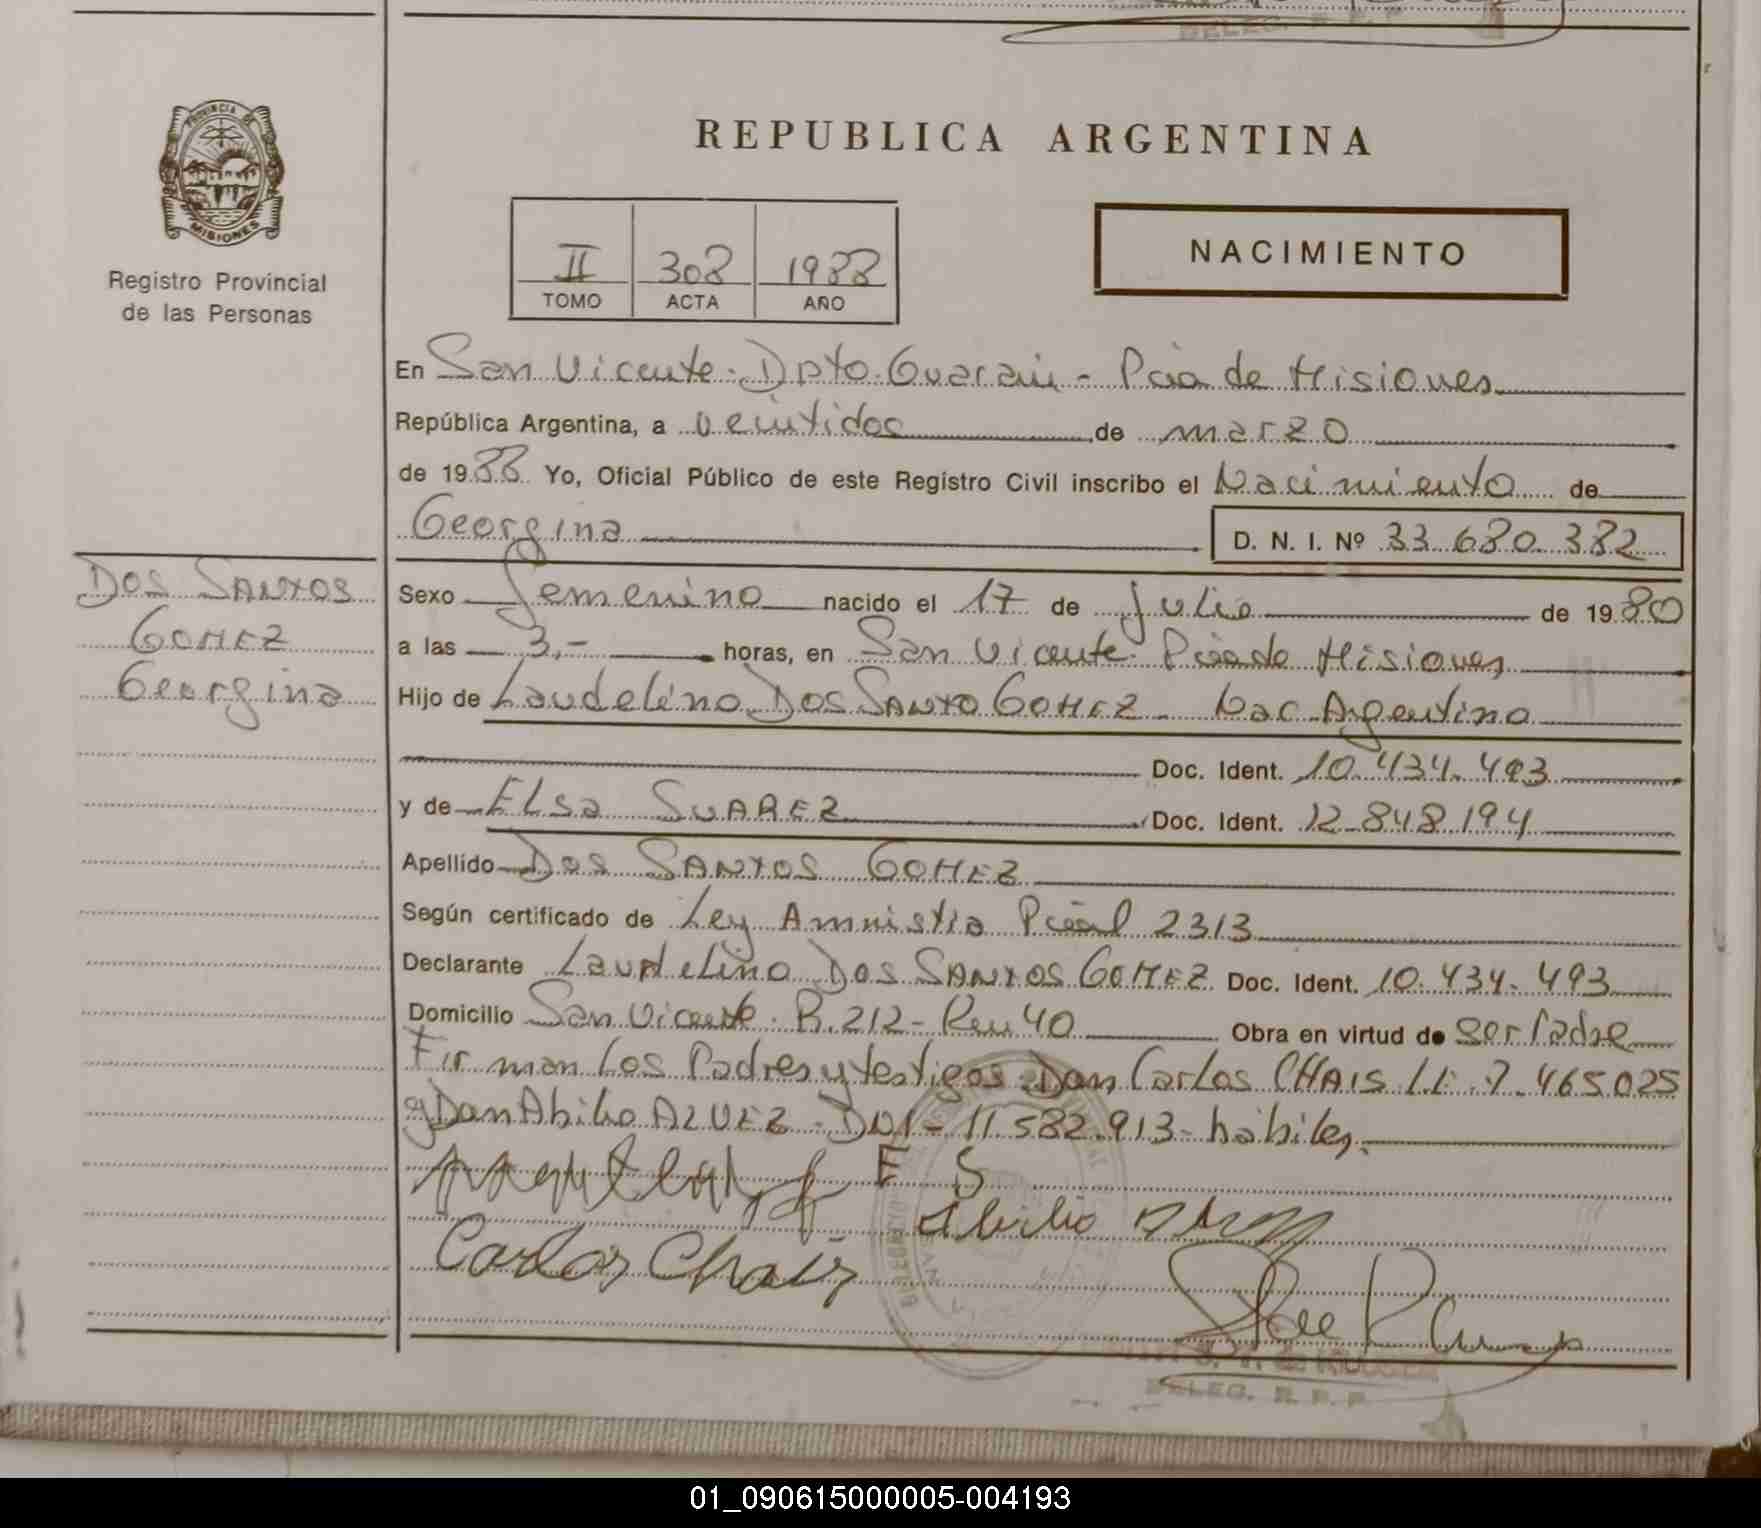 REPUBLICA ARGENTINA
PROVINCIA DE
MISIONES
Registro Provincial
de las Personas
II 308 1988
TOMO ACTA AÑO
NACIMIENTO
En San Vicente. Dpto. Guarani - Pcia de Misiones
República Argentina, a veintidos de marzo
de 1988 Yo, Oficial Público de este Registro Civil inscribo el Nacimiento de
Georgina D. N. I. Nº 33.680.382
DOS SANTOS
GOMEZ
Georgina
Sexo Femenino nacido el 17 de Julio de 1980
a las 3,- horas, en San Vicente Pciade Misiones
Hijo de Laudelino DOS SANTO GOMEZ - Nac Argentino
Doc. Ident. 10.434.493
y de ELSa SUAREZ Doc. Ident. 12.848.194
Apellido DOS SANTOS GOMEZ
Según certificado de Ley Amnistia Pcial 2313
Declarante Laudelino DOS SANTOS GOMEZ Doc. Ident. 10.434.493
Domicilio San Vicente. R.212- Km 40 Obra en virtud de ser Padre
Firman Los Padres y testigos Don Carlos CHAIS L.E. 7.465.025
y Don Abilio ALVEZ - DNI - 11.582.913 - habiles.
E S
Abilio
Carlos Chais
DELEG. R. P. P
01_090615000005-004193